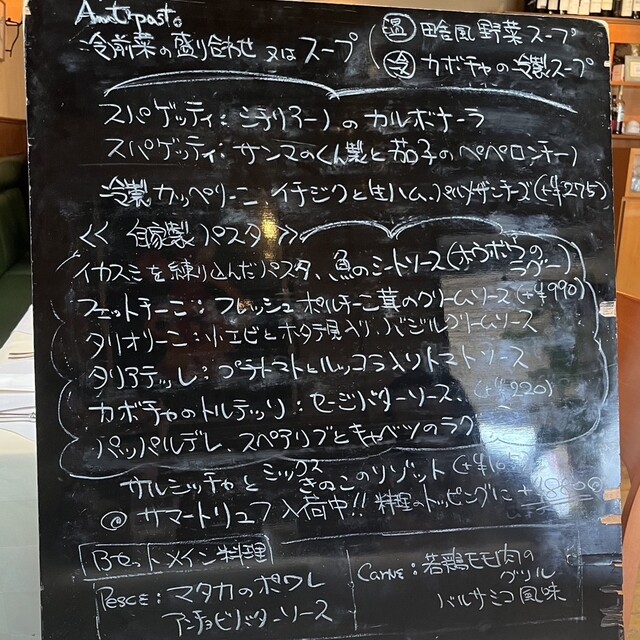 Antipasto
冷前菜の盛り合わせ 又は スープ
温 田舎風野菜スープ
冷 カボチャの冷製スープ
スパゲッティ：シチリアーノのカルボナーラ
スパゲッティ：サンマのくん製と茄子のペペロンチーノ
冷製 カッペリーニ イチジクと生ハム、パルメザンチーズ(+¥275)
<< 自家製パスタ >>
イカスミを練り込んだパスタ、魚のミートソース(ホウボウのラグー)
フェットチーニ：フレッシュポルチーニ茸のクリームソース(+¥990)
タリオリーニ：小エビとホタテ貝入り、バジルクリームソース
タリアテッレ：プチトマトとルッコラ入りトマトソース
カボチャのトルテッリ：セージバターソース、(+¥220)
パッパルデレ、スペアリブとキャベツのラグー
サルシッチャとミックスきのこのリゾット
◎ サマートリュフ入荷中!! 料理のトッピングに
Bセットメイン料理
Pesce：マダカのポワレ
アンチョビバターソース
Carne：若鶏モモ肉の
グリル
バルサミコ風味